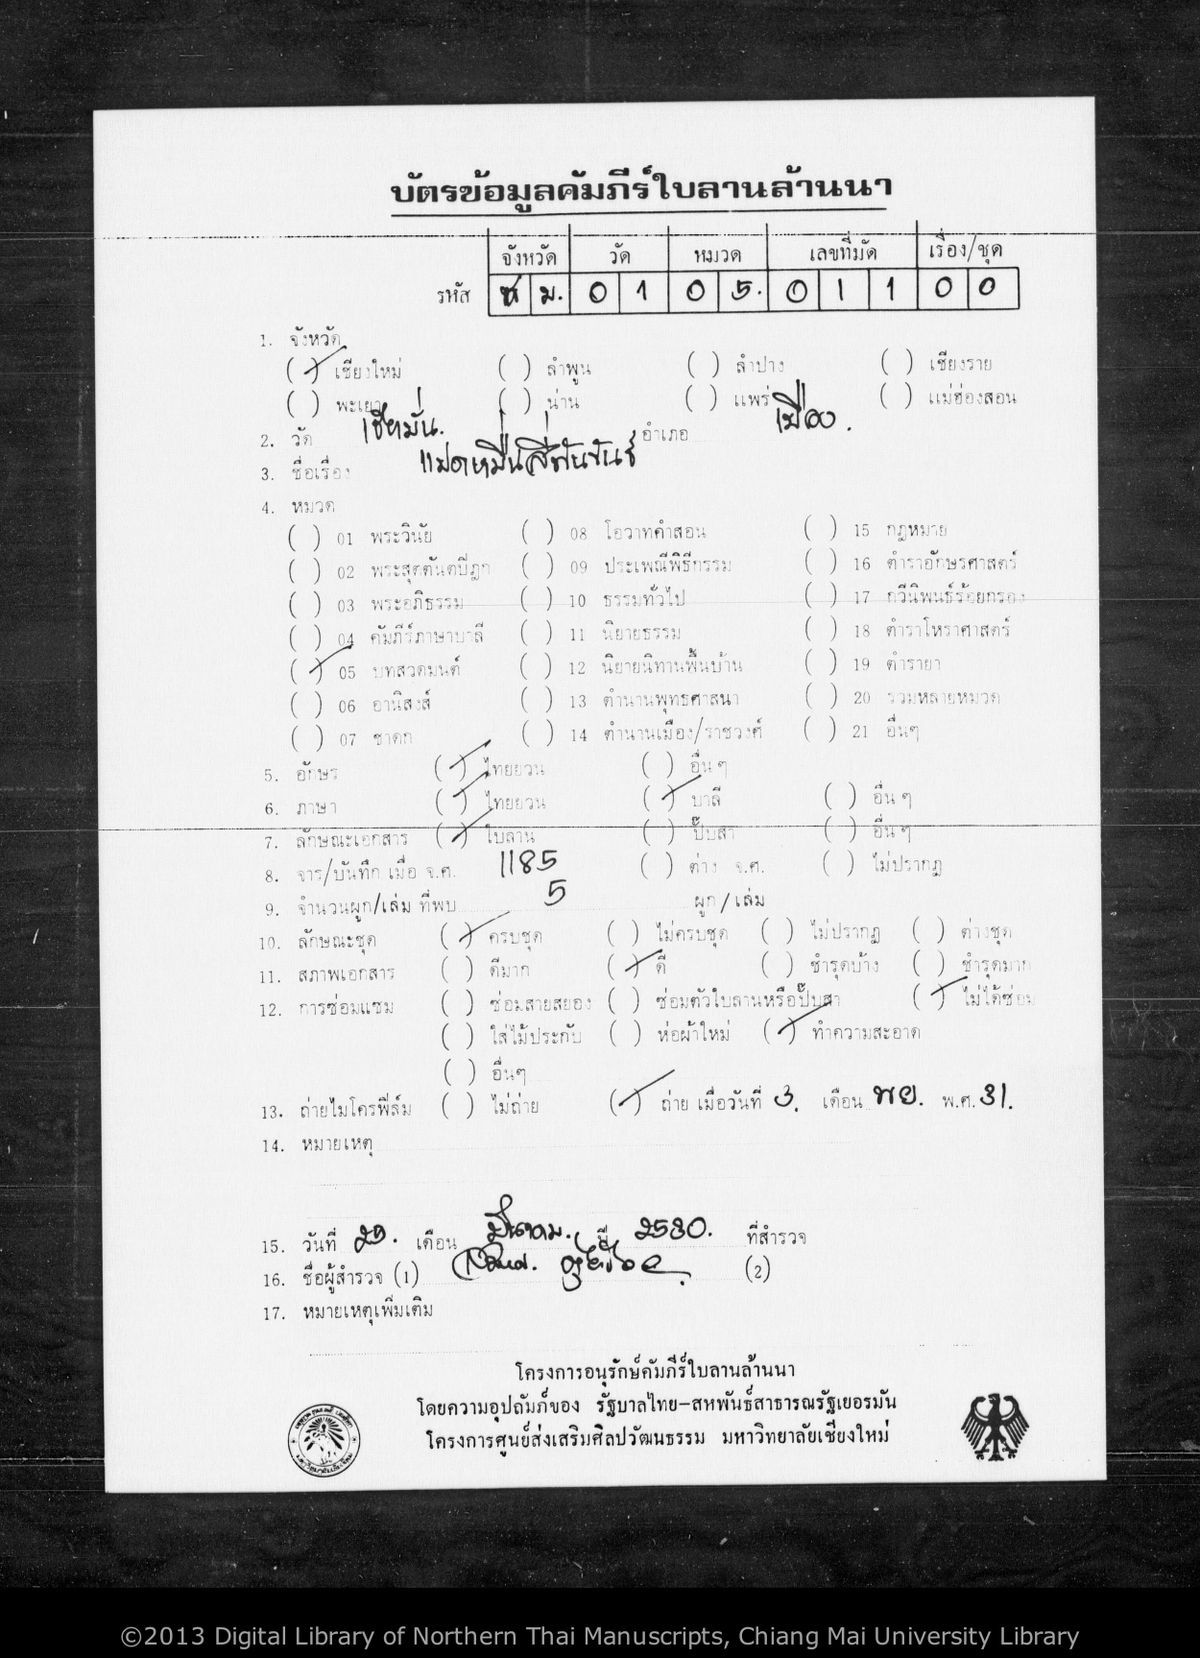 บัตรข้อมูลคัมภีร์ใบลานล้านนา
จังหวัด วัด หมวด เลขที่มัด เรื่อง/ชุด
รหัส ช ม. 0 1 0 5. 0 1 1 0 0
1. จังหวัด
(✓) เชียงใหม่ ( ) ลำพูน ( ) ลำปาง ( ) เชียงราย
( ) พะเยา ( ) น่าน ( ) แพร่ ( ) แม่ฮ่องสอน
2. วัด เชียงมั่น. อำเภอ เมือง.
3. ชื่อเรื่อง แปดหมื่นสี่พันขันธ์
4. หมวด
( ) 01 พระวินัย ( ) 08 โอวาทคำสอน ( ) 15 กฎหมาย
( ) 02 พระสุตตันตปิฎก ( ) 09 ประเพณีพิธีกรรม ( ) 16 ตำราอักษรศาสตร์
( ) 03 พระอภิธรรม ( ) 10 ธรรมทั่วไป ( ) 17 กวีนิพนธ์ร้อยกรอง
( ) 04 คัมภีร์ภาษาบาลี ( ) 11 นิยายธรรม ( ) 18 ตำราโหราศาสตร์
(✓) 05 บทสวดมนต์ ( ) 12 นิยายนิทานพื้นบ้าน ( ) 19 ตำรายา
( ) 06 อานิสงส์ ( ) 13 ตำนานพุทธศาสนา ( ) 20 รวมหลายหมวด
( ) 07 ชาดก ( ) 14 ตำนานเมือง/ราชวงศ์ ( ) 21 อื่นๆ
5. อักษร (✓) ไทยยวน ( ) อื่นๆ
6. ภาษา (✓) ไทยยวน (✓) บาลี ( ) อื่นๆ
7. ลักษณะเอกสาร (✓) ใบลาน ( ) ปั๊บสา ( ) อื่นๆ
8. จาร/บันทึก เมื่อ จ.ศ. 1185 ( ) ต่าง จ.ศ. ( ) ไม่ปรากฏ
9. จำนวนผูก/เล่ม ที่พบ 5 ผูก/เล่ม
10. ลักษณะชุด (✓) ครบชุด ( ) ไม่ครบชุด ( ) ไม่ปรากฏ ( ) ต่างชุด
11. สภาพเอกสาร ( ) ดีมาก (✓) ดี ( ) ชำรุดบ้าง ( ) ชำรุดมาก
12. การซ่อมแซม ( ) ซ่อมสายสยอง ( ) ซ่อมตัวใบลานหรือปั๊บสา (✓) ไม่ได้ซ่อม
( ) ใส่ไม้ประกับ ( ) ห่อผ้าใหม่ (✓) ทำความสะอาด
( ) อื่นๆ
13. ถ่ายไมโครฟิล์ม ( ) ไม่ถ่าย (✓) ถ่าย เมื่อวันที่ 3. เดือน พย. พ.ศ. 31.
14. หมายเหตุ
15. วันที่ 29. เดือน มีนาคม. ปี 2530. ที่สำรวจ
16. ชื่อผู้สำรวจ (1) (2)
17. หมายเหตุเพิ่มเติม
โครงการอนุรักษ์คัมภีร์ใบลานล้านนา
โดยความอุปถัมภ์ของ รัฐบาลไทย-สหพันธ์สาธารณรัฐเยอรมัน
โครงการศูนย์ส่งเสริมศิลปวัฒนธรรม มหาวิทยาลัยเชียงใหม่
©2013 Digital Library of Northern Thai Manuscripts, Chiang Mai University Library